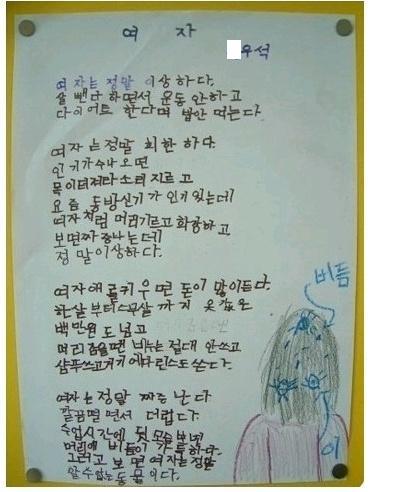 여 자
우석
여자는 정말 이상하다.
살 뺀다 하면서 운동 안하고
다이어트 한다며 밥안 먹는다.
여자는 정말 희한 하다.
인기가수나오면
목이터져라소리지르고
요즘 동방신기가 인기있는데
여자처럼 머리기르고 화장하고
보면짜증나는데
정말이상하다.
여자애를키우면 돈이 많이든다.
한살부터스무살까지 옷값은
백만원도넘고
머리감을땐 비누는 절대 안쓰고
샴푸쓰고거기에다린스도쓴다.
여자는 정말 짜증난다
깔끔떨면서 더럽다
수업시간에 뒷모습보면
머리에 비듬이가득하다.
그러고 보면 여자는정말
알수없는동물이다.
비듬
이